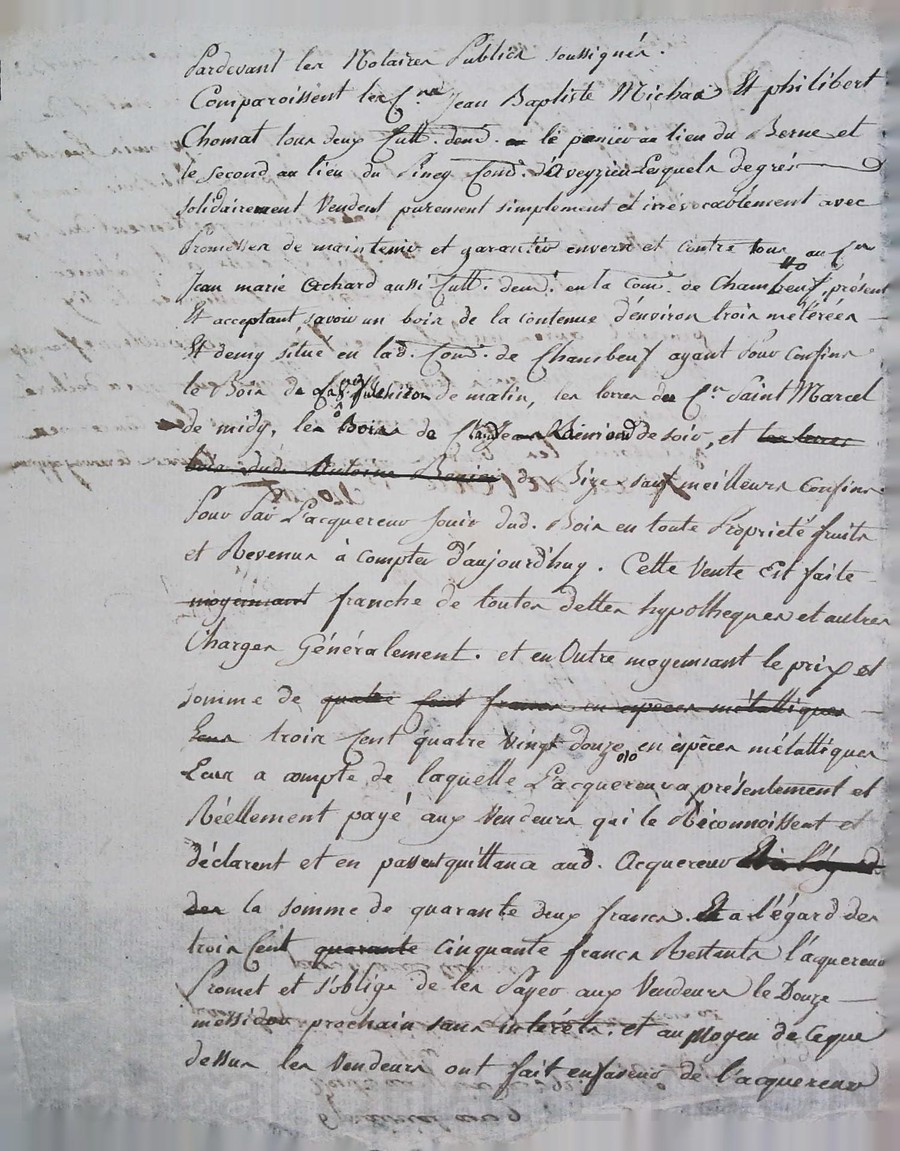 Pardevant les Notaires Publics soussignés.
Comparoissent les C.ens Jean Baptiste Michaa Et philibert
Chomat tous deux Cult. dem.t le premier au lieu du Berne et
le second au lieu du Piney Com.e d'aveyzieu Lesquels de grés
solidairement Vendent purement simplement et irrévocablement avec
Promesses de maintenir et garantir envers et contre tous au C.en
Jean marie Achard aussi Cult. dem.t en la Com.e de Chambeuf, présent
Et acceptant savoir un bois de la contenue d'environ trois métérées
Et demy situé en lad. Com.e de Chambeuf ayant Pour Confins
le Bois de de matin, les terres du C.n Saint Marcel
de midy, les Bois de de soir, et les terres
bois dud. Antoine de Bize sauf meilleurs Confins
Pour Par L'acquereur Jouir dud. Bois en toute Propriété fruits
et Revenus à Compter d'aujourd'huy. Cette Vente Est faite
moyennant franche de toutes dettes hypotheques et autres
Charges Généralement. et en Outre moyennant le prix et
somme de quatre Cent francs en espèces métalliques
trois Cent quatre Vingt douze en espèces métalliques
a compte de laquelle L'acquereur a présentement et
Réellement payé aux Vendeurs qui le Réconnoissent et
déclarent et en passent quittance aud. Acquereur Et à l'égard
des la somme de quarante deux francs. Et a l'égard des
trois Cent quarante cinquante francs Restants l'acquereur
Promet et s'oblige de les Payer aux Vendeurs le Douze
messidor prochain sans intérêts. et au Moyen de Ceque
dessus les Vendeurs ont fait enfaveur de l'acquereur